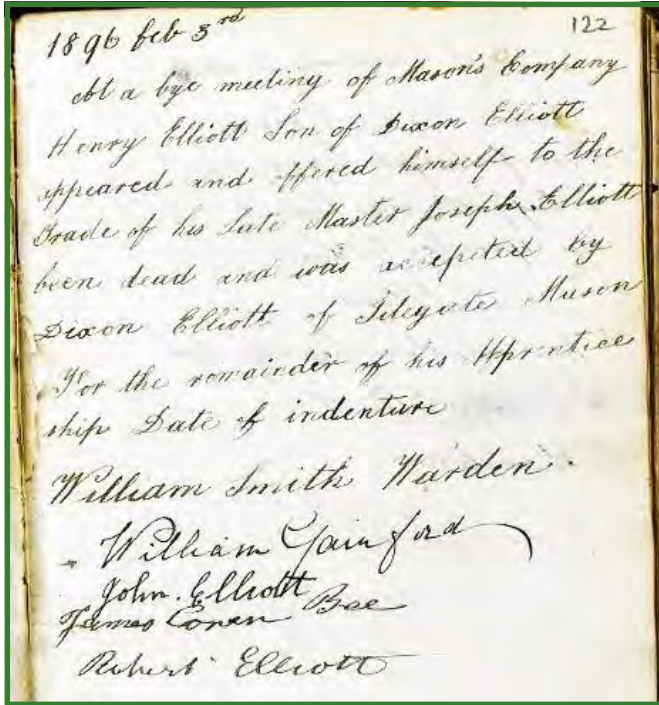 1896 feb 3rd
122
At a bye meeting of Mason's Company
Henry Elliott Son of Dixon Elliott
appeared and offered himself to the
Trade of his Late Master Joseph Elliott
been dead and was accepted by
Dixon Elliott of Silegate Mason
For the remainder of his Apprentice
ship Date of indenture
William Smith Warden.
William Gainford
John. Elliott
James Cowen Bee
Robert Elliott